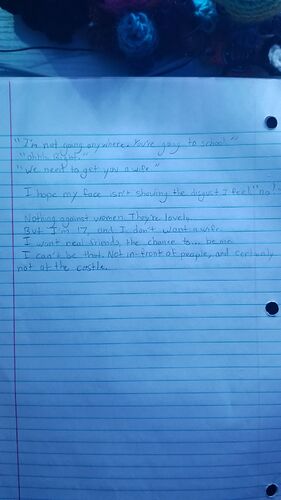 "I'm not going anywhere. You're going to school."
"ohhh. Right."
"We need to get you a wife"
I hope my face isn't showing the disgust I feel "no!"
Nothing against women. They're lovely.
But I'm 17, and I don't want a wife.
I want real friends, the chance to... be me.
I can't be that. Not in-front of people, and certainly
not at the castle.